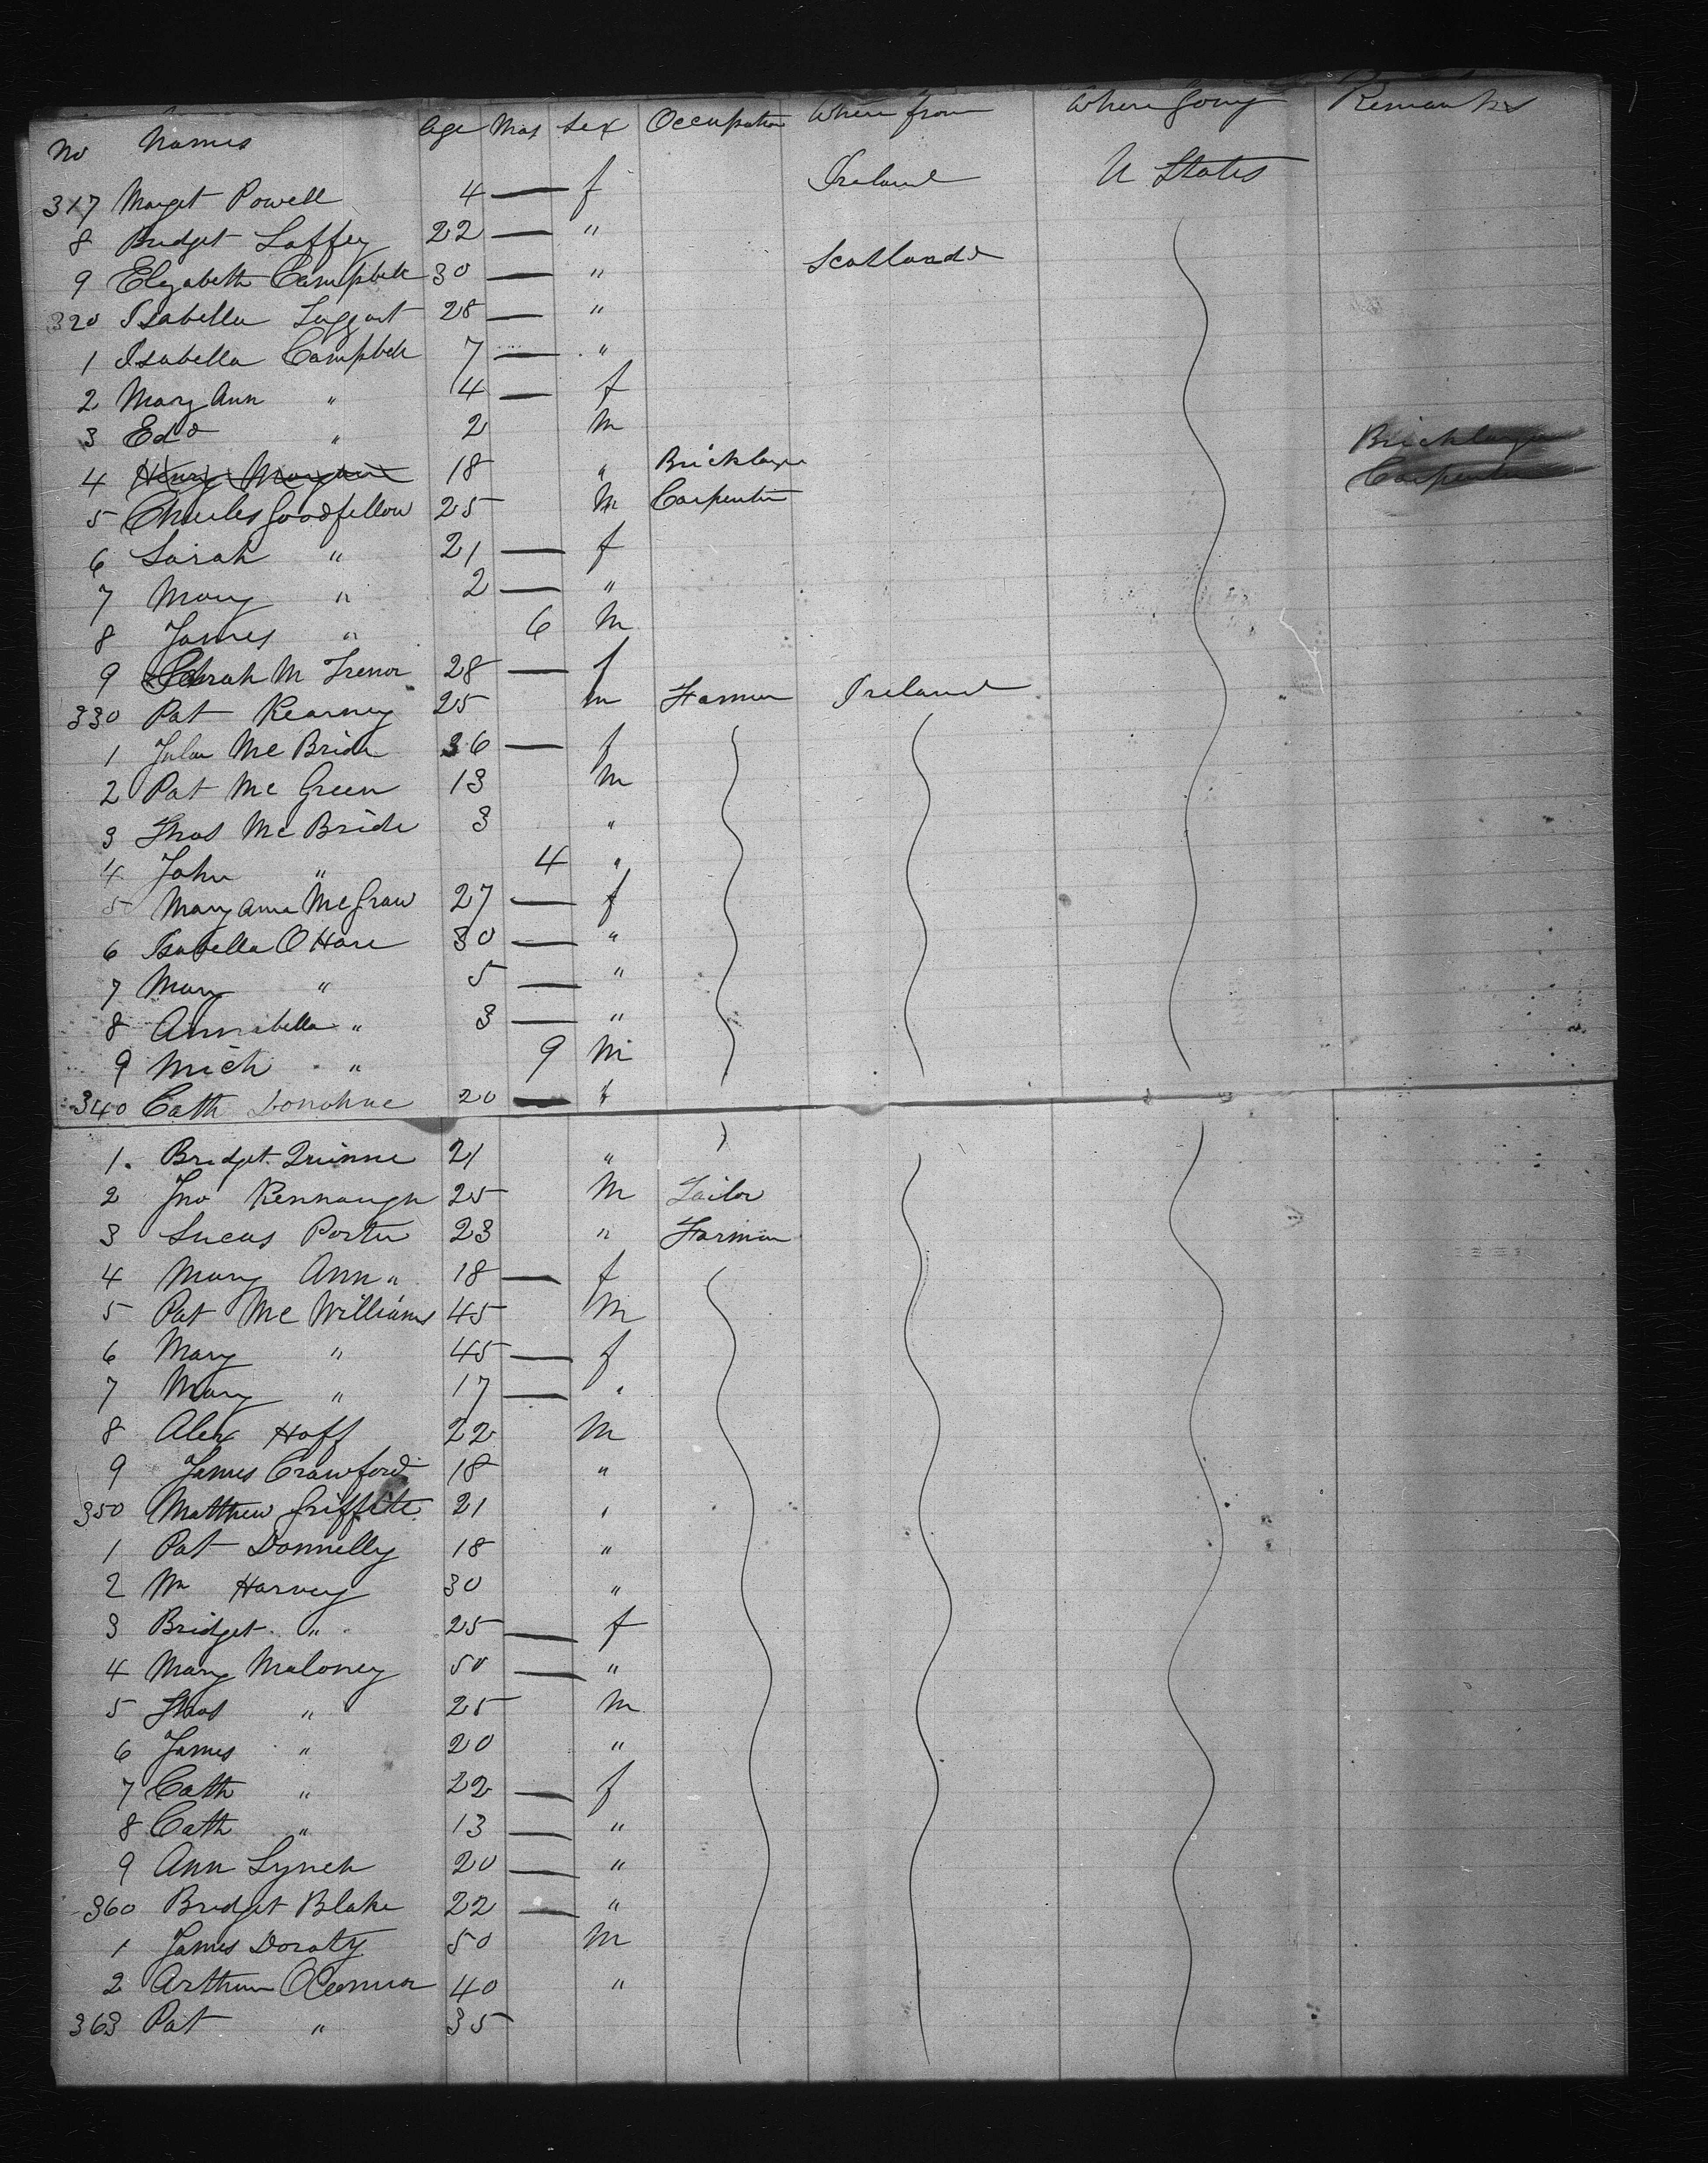 No Names Age Mos Sex Occupation Where from Where Going Remarks
317 Marget Powell 4 — f Ireland U States
8 Bridget Laffey 22 — "
9 Elizabeth Campbell 30 — " Scotland
320 Isabella Taggart 28 — "
1 Isabella Campbell 7 — "
2 Mary Ann " 4 — f
3 Edd " 2 m
4 Henry 18 " Bricklayer Bricklayer
5 Charles Goodfellow 25 m Carpenter Carpenter
6 Sarah " 21 — f
7 Mary " 2 — "
8 James " 6 m
9 Sarah M Trenor 28 — f
330 Pat Kearney 25 m Farmer Ireland
1 Julia Mc Bride 36 — f
2 Pat Mc Green 13 m
3 Thos Mc Bride 3 "
4 John " 4 "
5 Mary Ann McGraw 27 — f
6 Isabella O Hare 30 — "
7 Mary " 5 — "
8 Annabella " 3 — "
9 Mich " 9 m
340 Cath Donohue 20 — f
1. Bridget Quinne 21 "
2 Jno Kennaugh 25 m Tailor
3 Lucas Porter 23 " Farmer
4 Mary Ann " 18 — f
5 Pat Mc Williams 45 m
6 Mary " 45 — f
7 Mary " 17 — "
8 Alex Hoff 22 m
9 James Crawford 18 "
350 Matthew Griffite 21 "
1 Pat Donnelly 18 "
2 Wm Harvey 30 "
3 Bridget " 25 — f
4 Mary Maloney 50 — "
5 Thos " 25 m
6 James " 20 "
7 Cath " 22 — f
8 Cath " 13 — "
9 Ann Lynch 20 — "
360 Bridget Blake 22 — "
1 James Doraty 50 m
2 Arthur OConnor 40 "
363 Pat " 35